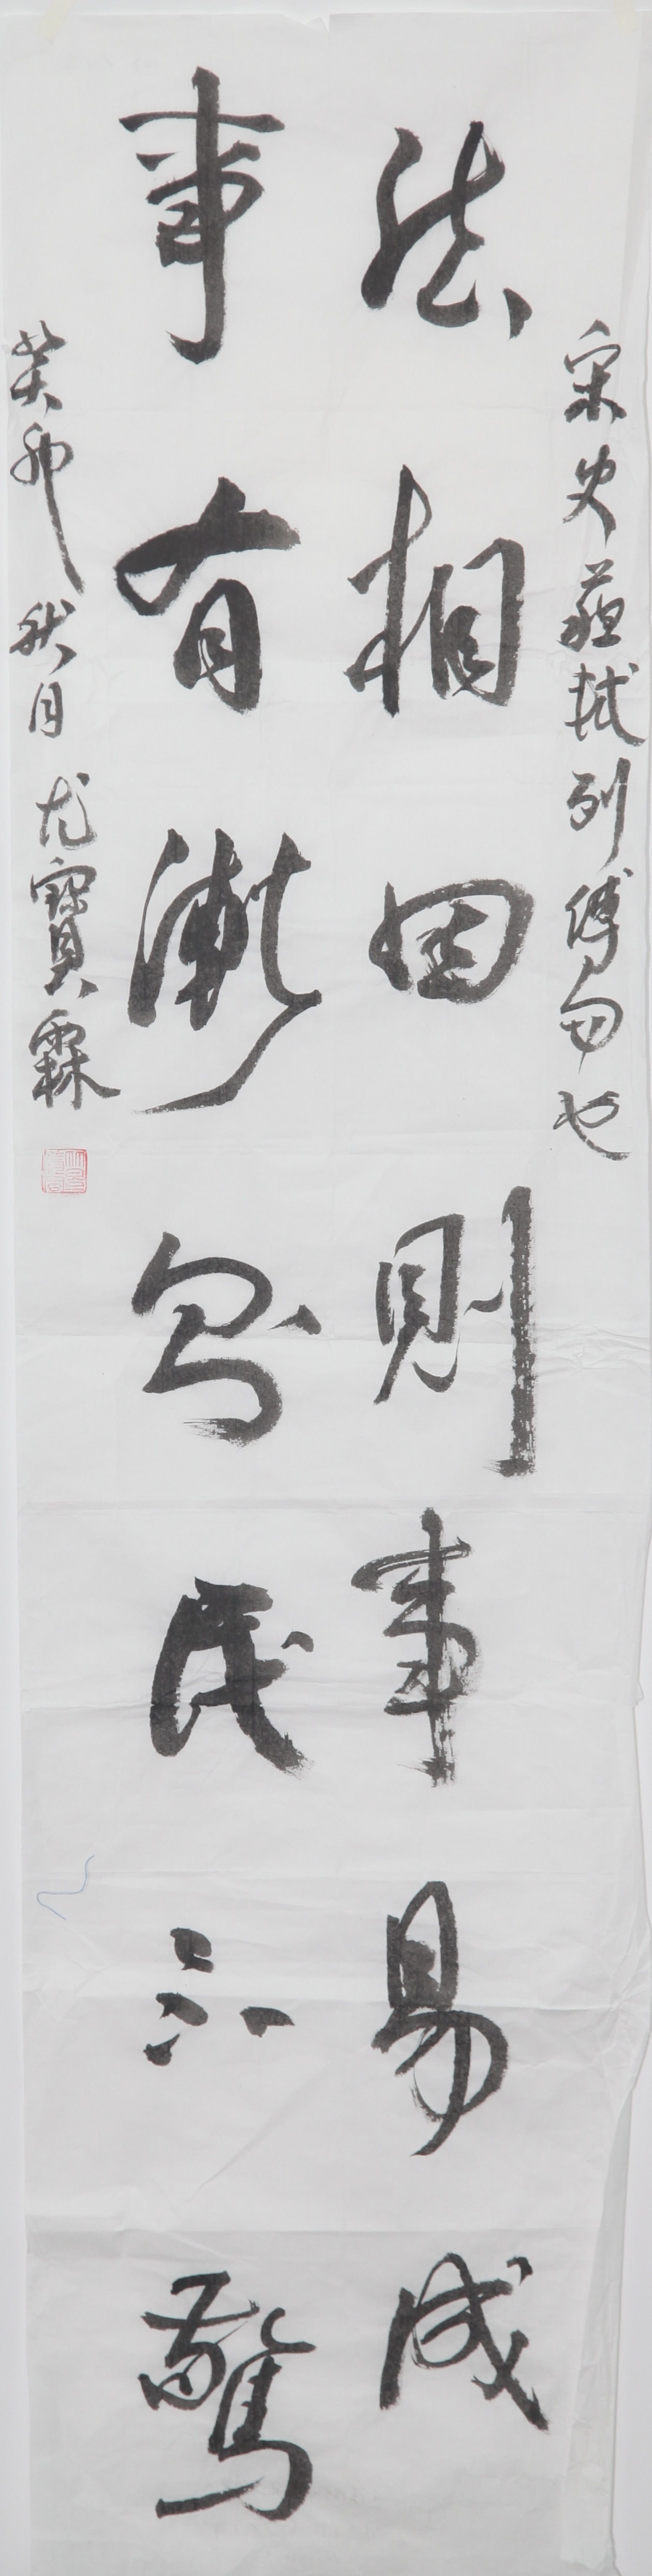 宋史蘇軾列傳句也
法相因則事易成
事有漸則民不驚
癸卯秋月尤寶霖